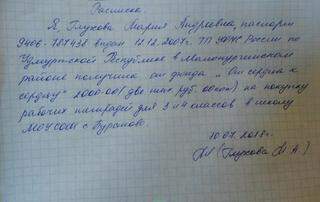 Расписка
Я, Глухова Мария Андреевна, паспорт
9406-787438 выдан 12.12.2007г. ТП УФМС России по
Удмуртской Республике в Малопургинском
районе получила от фонда „От сердца к
сердцу" 2000-00 (две тыс. руб. 00коп) на покупку
рабочих тетрадей для 3 и 4 классов в школу
МОУ СОШ с. Бураново.
10.07.2018г.
(Глухова М А)